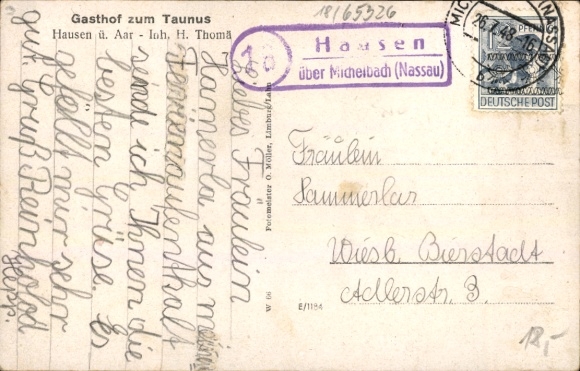 Gasthof zum Taunus
Hausen ü. Aar - Inh. H. Thomä
18/65326
16
Hausen
über Michelbach (Nassau)
MICHELBACH (NASSAU)
26.7.48.-16
b
PFENNIG
12
DEUTSCHE POST
Liebes Fräulein
Hamerla aus meinem
Ferienaufenthalt
sende ich Ihnen die
besten Grüse. Es
gefällt mir sehr
gut. Gruß Reinhold
Fotomeister O. Möller, Limburg/Lahn
W 06
E/1184
Fräulein
Hammerlar
Wiesb. Bierstadt
Adlerstr. 3.
12,-